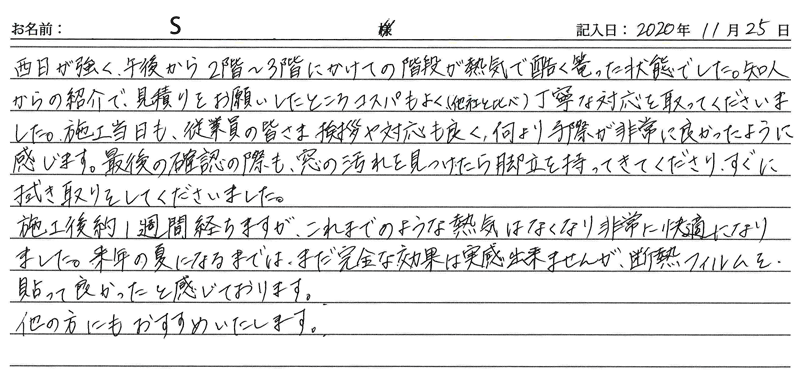 お名前： S 様 記入日：2020年 11月25日
西日が強く、午後から2階〜3階にかけての階段が熱気で酷く篭った状態でした。知人
からの紹介で、見積りをお願いしたところコスパもよく(他社と比べ)丁寧な対応を取ってくださいま
した。施工当日も、従業員の皆さま挨拶や対応も良く、何より手際が非常に良かったように
感じます。最後の確認の際も、窓の汚れを見つけたら脚立を持ってきてくださり、すぐに
拭き取りをしてくださいました。
施工後約1週間経ちますが、これまでのような熱気はなくなり非常に快適になり
ました。来年の夏になるまでは、まだ完全な効果は実感出来ませんが、断熱フィルムを、
貼って良かったと感じております。
他の方にもおすすめいたします。